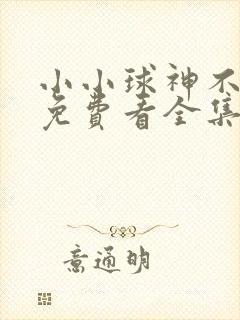 小小球神不
免費看全集
意通明